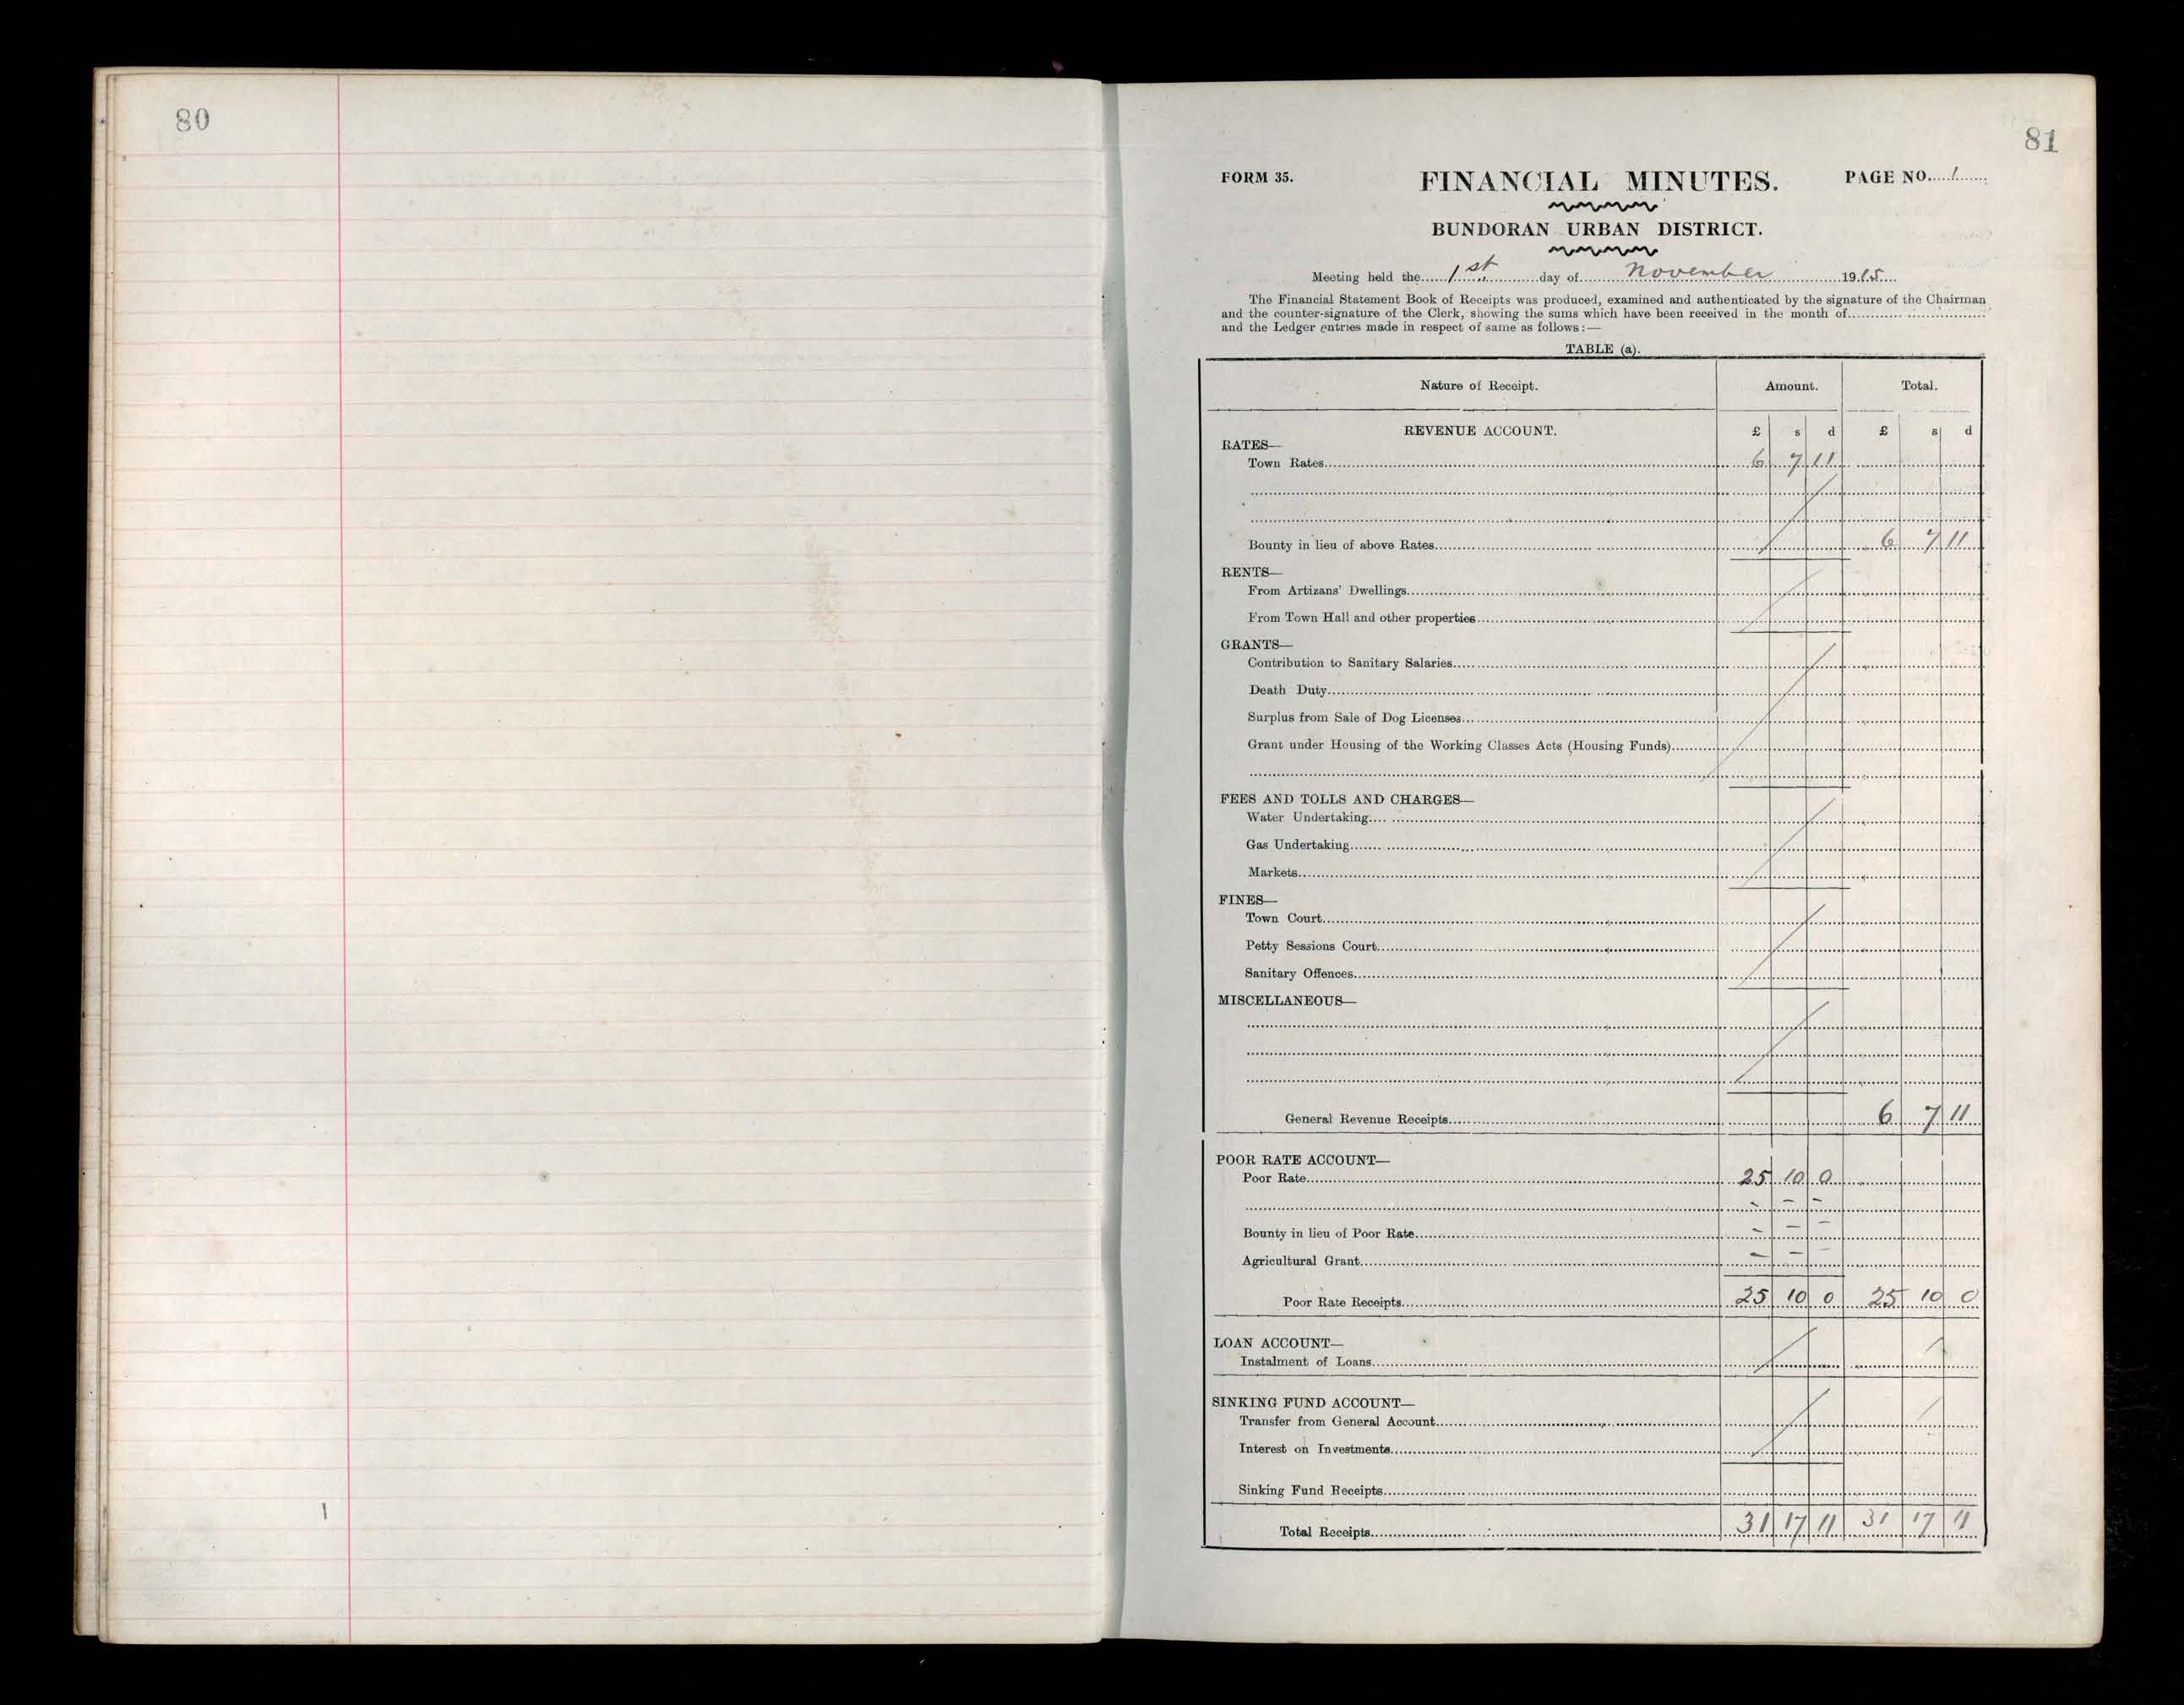 80
81
FORM 35.
FINANCIAL MINUTES.
PAGE NO. 1
BUNDORAN URBAN DISTRICT.
Meeting held the 1st day of November 1915
The Financial Statement Book of Receipts was produced, examined and authenticated by the signature of the Chairman
and the counter-signature of the Clerk, showing the sums which have been received in the month of
and the Ledger entries made in respect of same as follows:—
TABLE (a).
Nature of Receipt. Amount. Total.
REVENUE ACCOUNT. £ s d £ s d
RATES—
Town Rates 6 7 11
Bounty in lieu of above Rates 6 7 11
RENTS—
From Artizans' Dwellings
From Town Hall and other properties
GRANTS—
Contribution to Sanitary Salaries
Death Duty
Surplus from Sale of Dog Licenses
Grant under Housing of the Working Classes Acts (Housing Funds)
FEES AND TOLLS AND CHARGES—
Water Undertaking
Gas Undertaking
Markets
FINES—
Town Court
Petty Sessions Court
Sanitary Offences
MISCELLANEOUS—
General Revenue Receipts 6 7 11
POOR RATE ACCOUNT—
Poor Rate 25 10 0
- - -
Bounty in lieu of Poor Rate - - -
Agricultural Grant - - -
Poor Rate Receipts 25 10 0 25 10 0
LOAN ACCOUNT—
Instalment of Loans
SINKING FUND ACCOUNT—
Transfer from General Account
Interest on Investments
Sinking Fund Receipts
Total Receipts 31 17 11 31 17 11